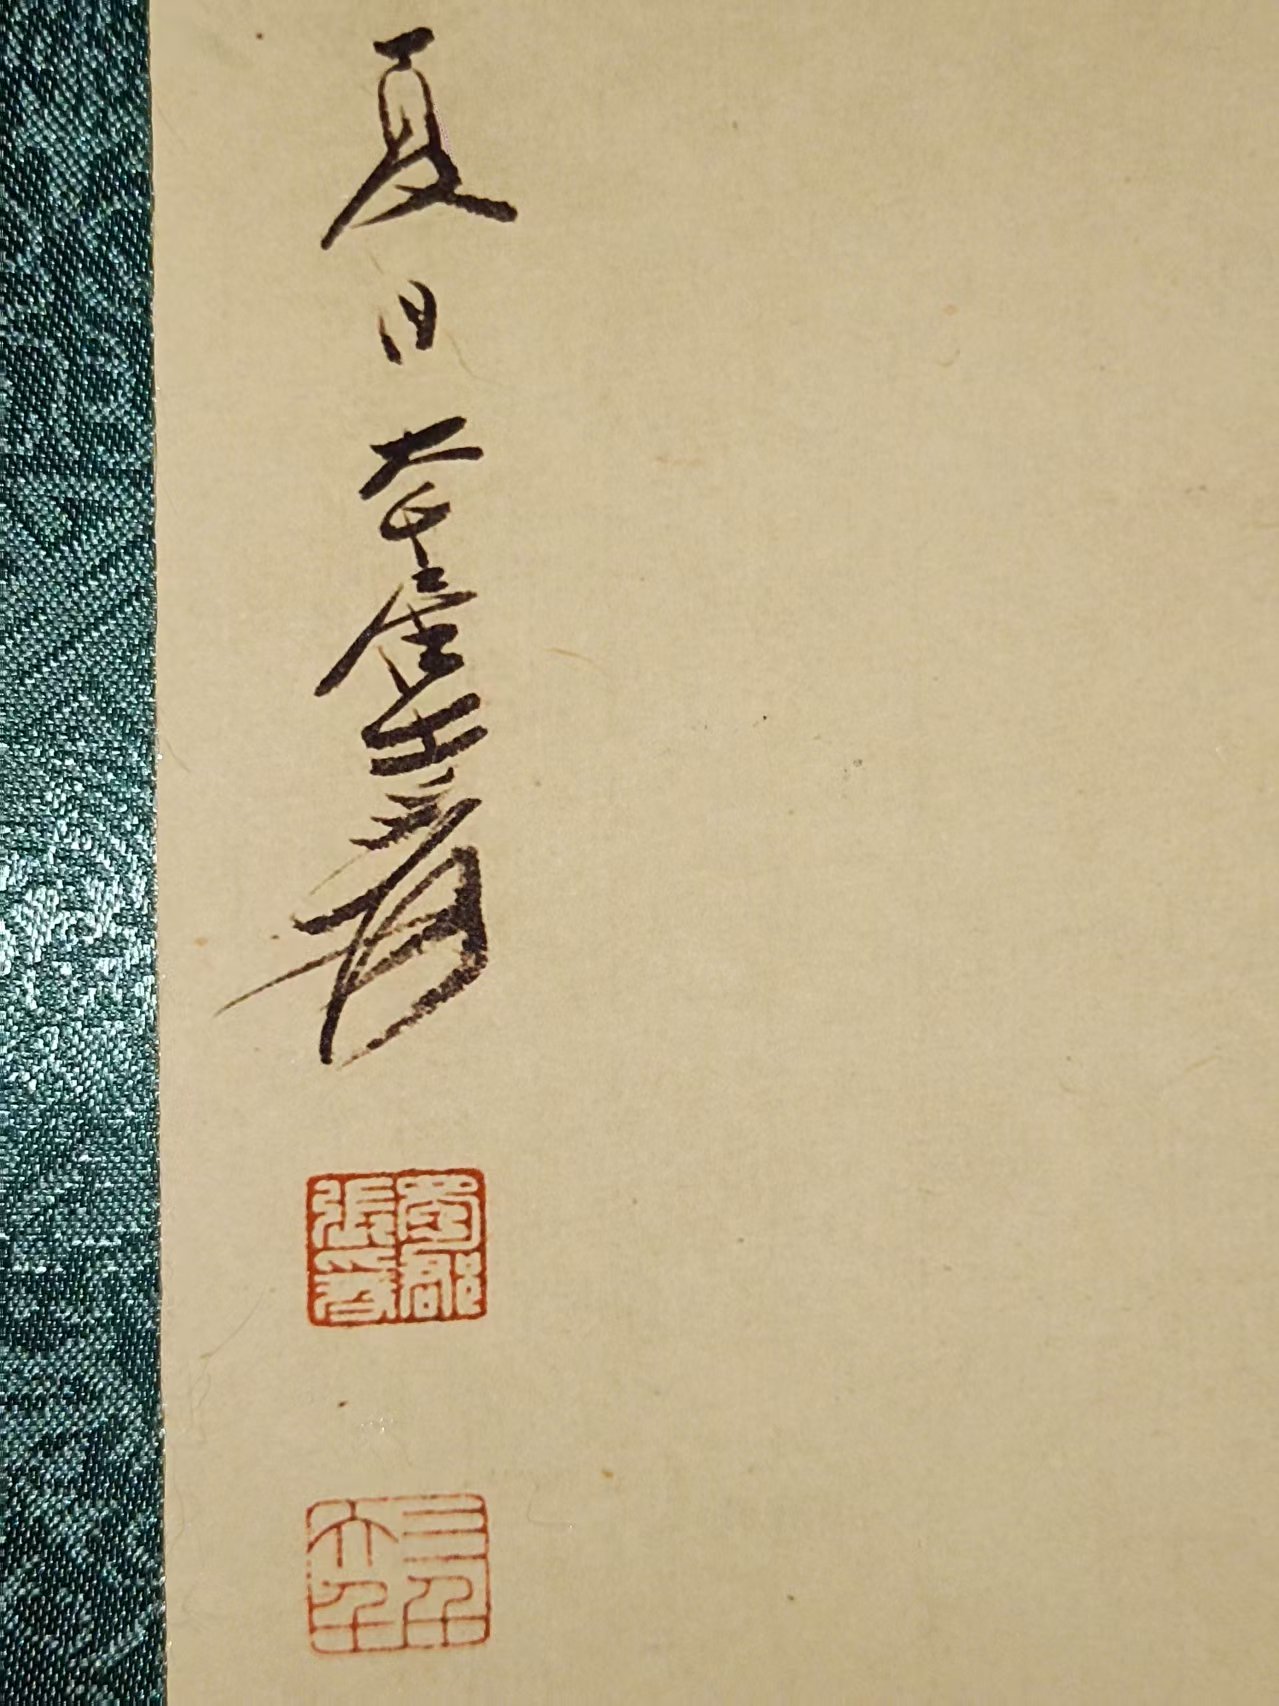 夏日大千居士爰
蜀郡
張爰
三千
大千